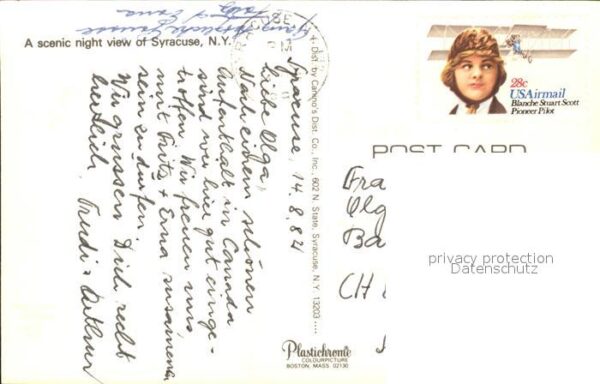 A scenic night view of Syracuse, N.Y.
Syracuse, 14.8.84
Liebe Olga,
Nach einem schönen
Aufenthalt in Canada
sind wir hier gut einge-
troffen. Wir freuen uns,
mit Fritz + Erna zusammen
sein zu dürfen.
Wir grüssen Dich recht
herzlich, Trudi + Arthur
Dist. by Canino's Dist. Co., Inc., 602 N. State, Syracuse, N.Y. 13203
Plastichrome
COLOURPICTURE
BOSTON, MASS. 02130
28c
USAirmail
Blanche Stuart Scott
Pioneer Pilot
POST CARD
Fra
Olg
Ba
CH
privacy protection
Datenschutz